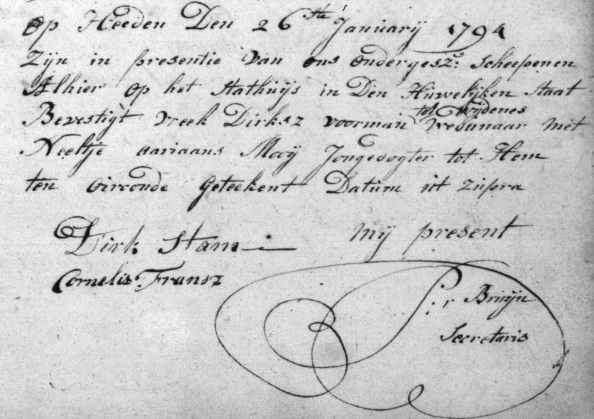 Op Heeden Den 26ste Januarij 1794
Zijn in presentie van ons ondergesz: Scheepenen
Alhier op het Stathuijs in Den Huwelijken Staat
tot Wijdenes
Bevestigt Vreek Dirksz voorman Wedunaar met
Neeltje Aariaans Maij Jongedogter tot Hem
ten oirconde Geteekent Datum ut Zupra
Dirk Stam
mij present
Cornelis Fransz
Pr Bruijn
Secretaris